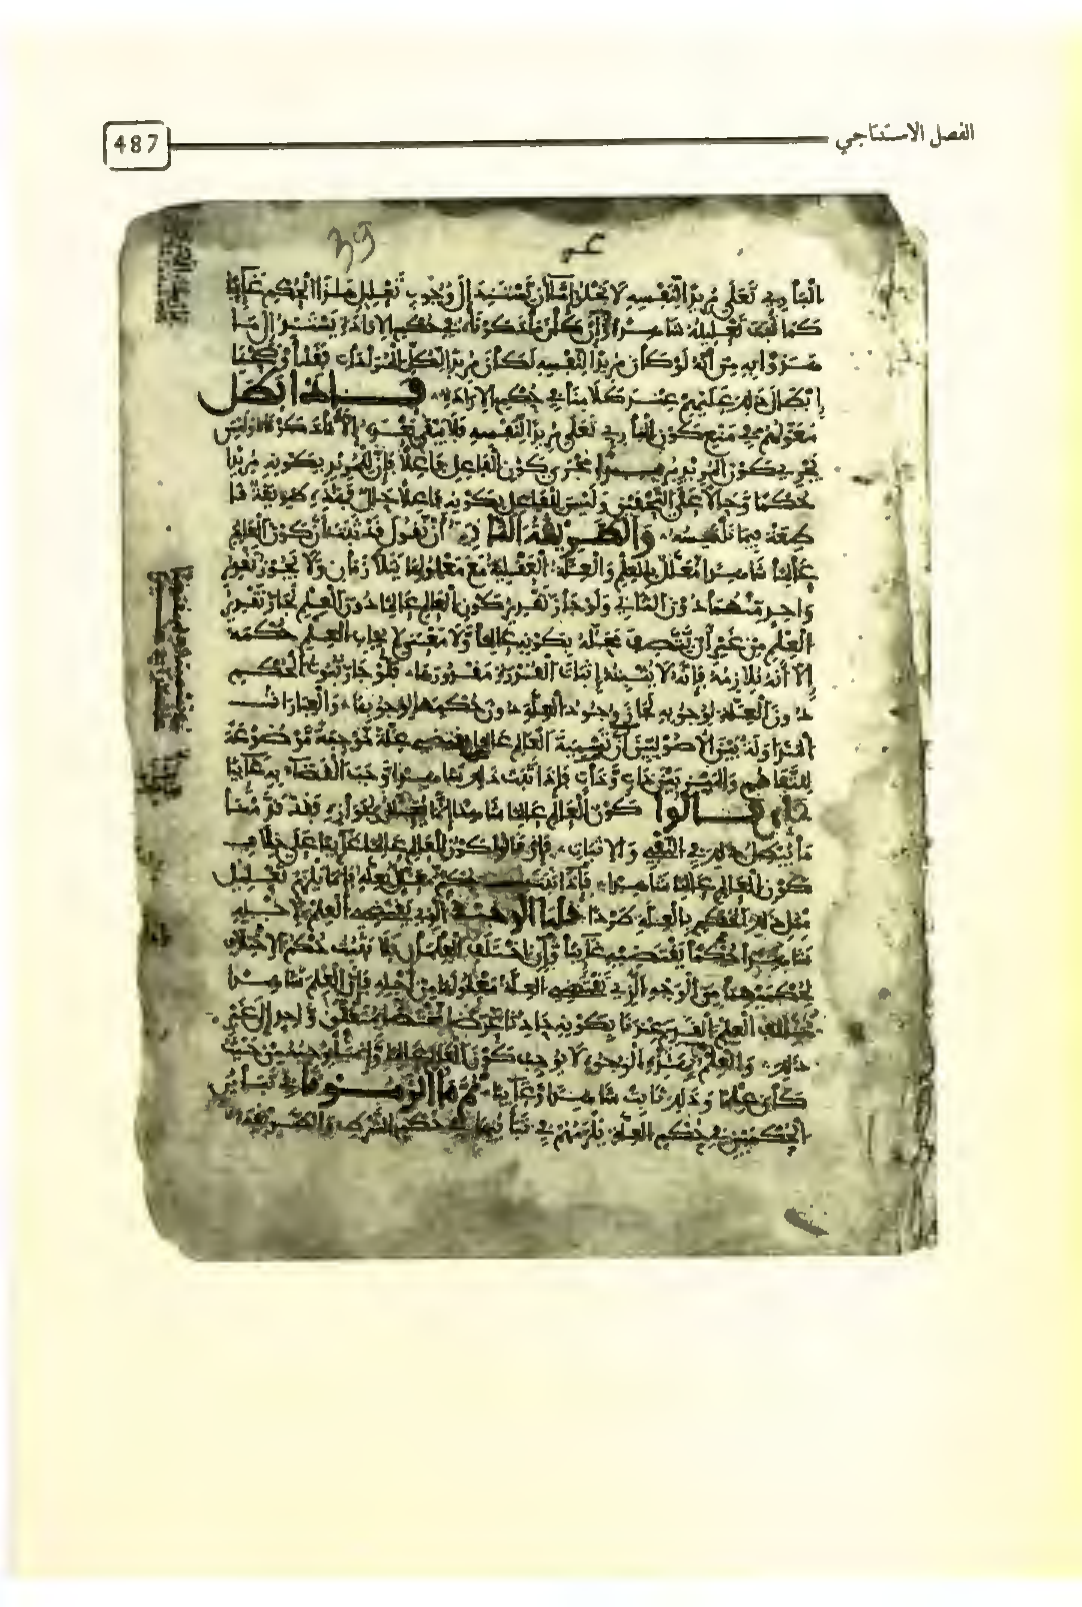 الفصل الاستنتاجي
487
39
الباري تعلى مريدا لنفسه لا يخلو إما أن يستند إلى وجوب تعليل هذا الحكم غائبا
كما ثبت تعليله شاهدا وإن كان ما ذكرناه في حكم الإرادة يستند إلى ما
من أنه لو كان مريدا لنفسه لكان مريدا لكل المرادات فقد أوضحنا
إبطال ذلك عليهم عند كلامنا في حكم الإرادة فإذا بطل
معولهم في منع كون الباري تعلى مريدا لنفسه فلا يبقى إلا ما ذكرناه وليس
يجري كون المريد مريدا مجرى كون الفاعل فاعلا فإن للمريد بكونه مريدا
حكما وحالا على التحقيق وليس للفاعل بكونه فاعلا حال فهذه طريقة
والطريقة الثانية أن نقول قد ثبت أن كون العالم
عالما شاهدا معلل بالعلم والعلة العقلية مع معلولها يتلازمان ولا يجوز تقدير
واحد منهما دون الثاني ولو جاز تقدير كون العالم عالما دون العلم لجاز تقدير
العلم من غير أن يتصف محله بكونه عالما ولا معنى لإيجاب العلم حكمه
إلا أنه يلازمه فإنه لا يثبته إثبات القدرة مقدورها فلو جاز ثبوت الحكم
دون العلة لوجوبه لجاز وجود العلة دون حكمها لوجوبها والعبارات
المتداولة بين الأصوليين أن تسمية العالم عالما
فإذا ثبت ذلك شاهدا وجب القضاء به غائبا
فإن قالوا كون العالم عالما شاهدا إنما يعلل لجوازه فقد قدمنا
ما يبطل ذلك في النفي والإثبات فإن قالوا كون العالم عالما غائبا على خلاف
كون العالم عالما شاهدا فإذا ثبت حكم معلل بعلة فإنما يلزم تعليل
مثل ذلك الحكم بالعلة طردا قلنا الوجه الذي يقتضي العلم لأجله
شاهدا حكما يقتضيه غائبا وإن اختلف العلمان فلا يثبت حكم الاختلاف
لحكميهما من الوجه الذي تقتضي العلة معلولها من أجله فإن العلم شاهدا
يخالف العلم القديم عندنا بكونه حادثا عرضا مختصا بمتعلق واحد إلى غير
ذلك والعلم لهذه الوجوه لا يوجب كون العالم عالما وإنما يوجبه من حيث
كان علما وذلك ثابت شاهدا وغائبا ثم ما ألزمونا في تباين
الحكمين في حكم العلة يلزمهم في تباينهما في حكم الشرط